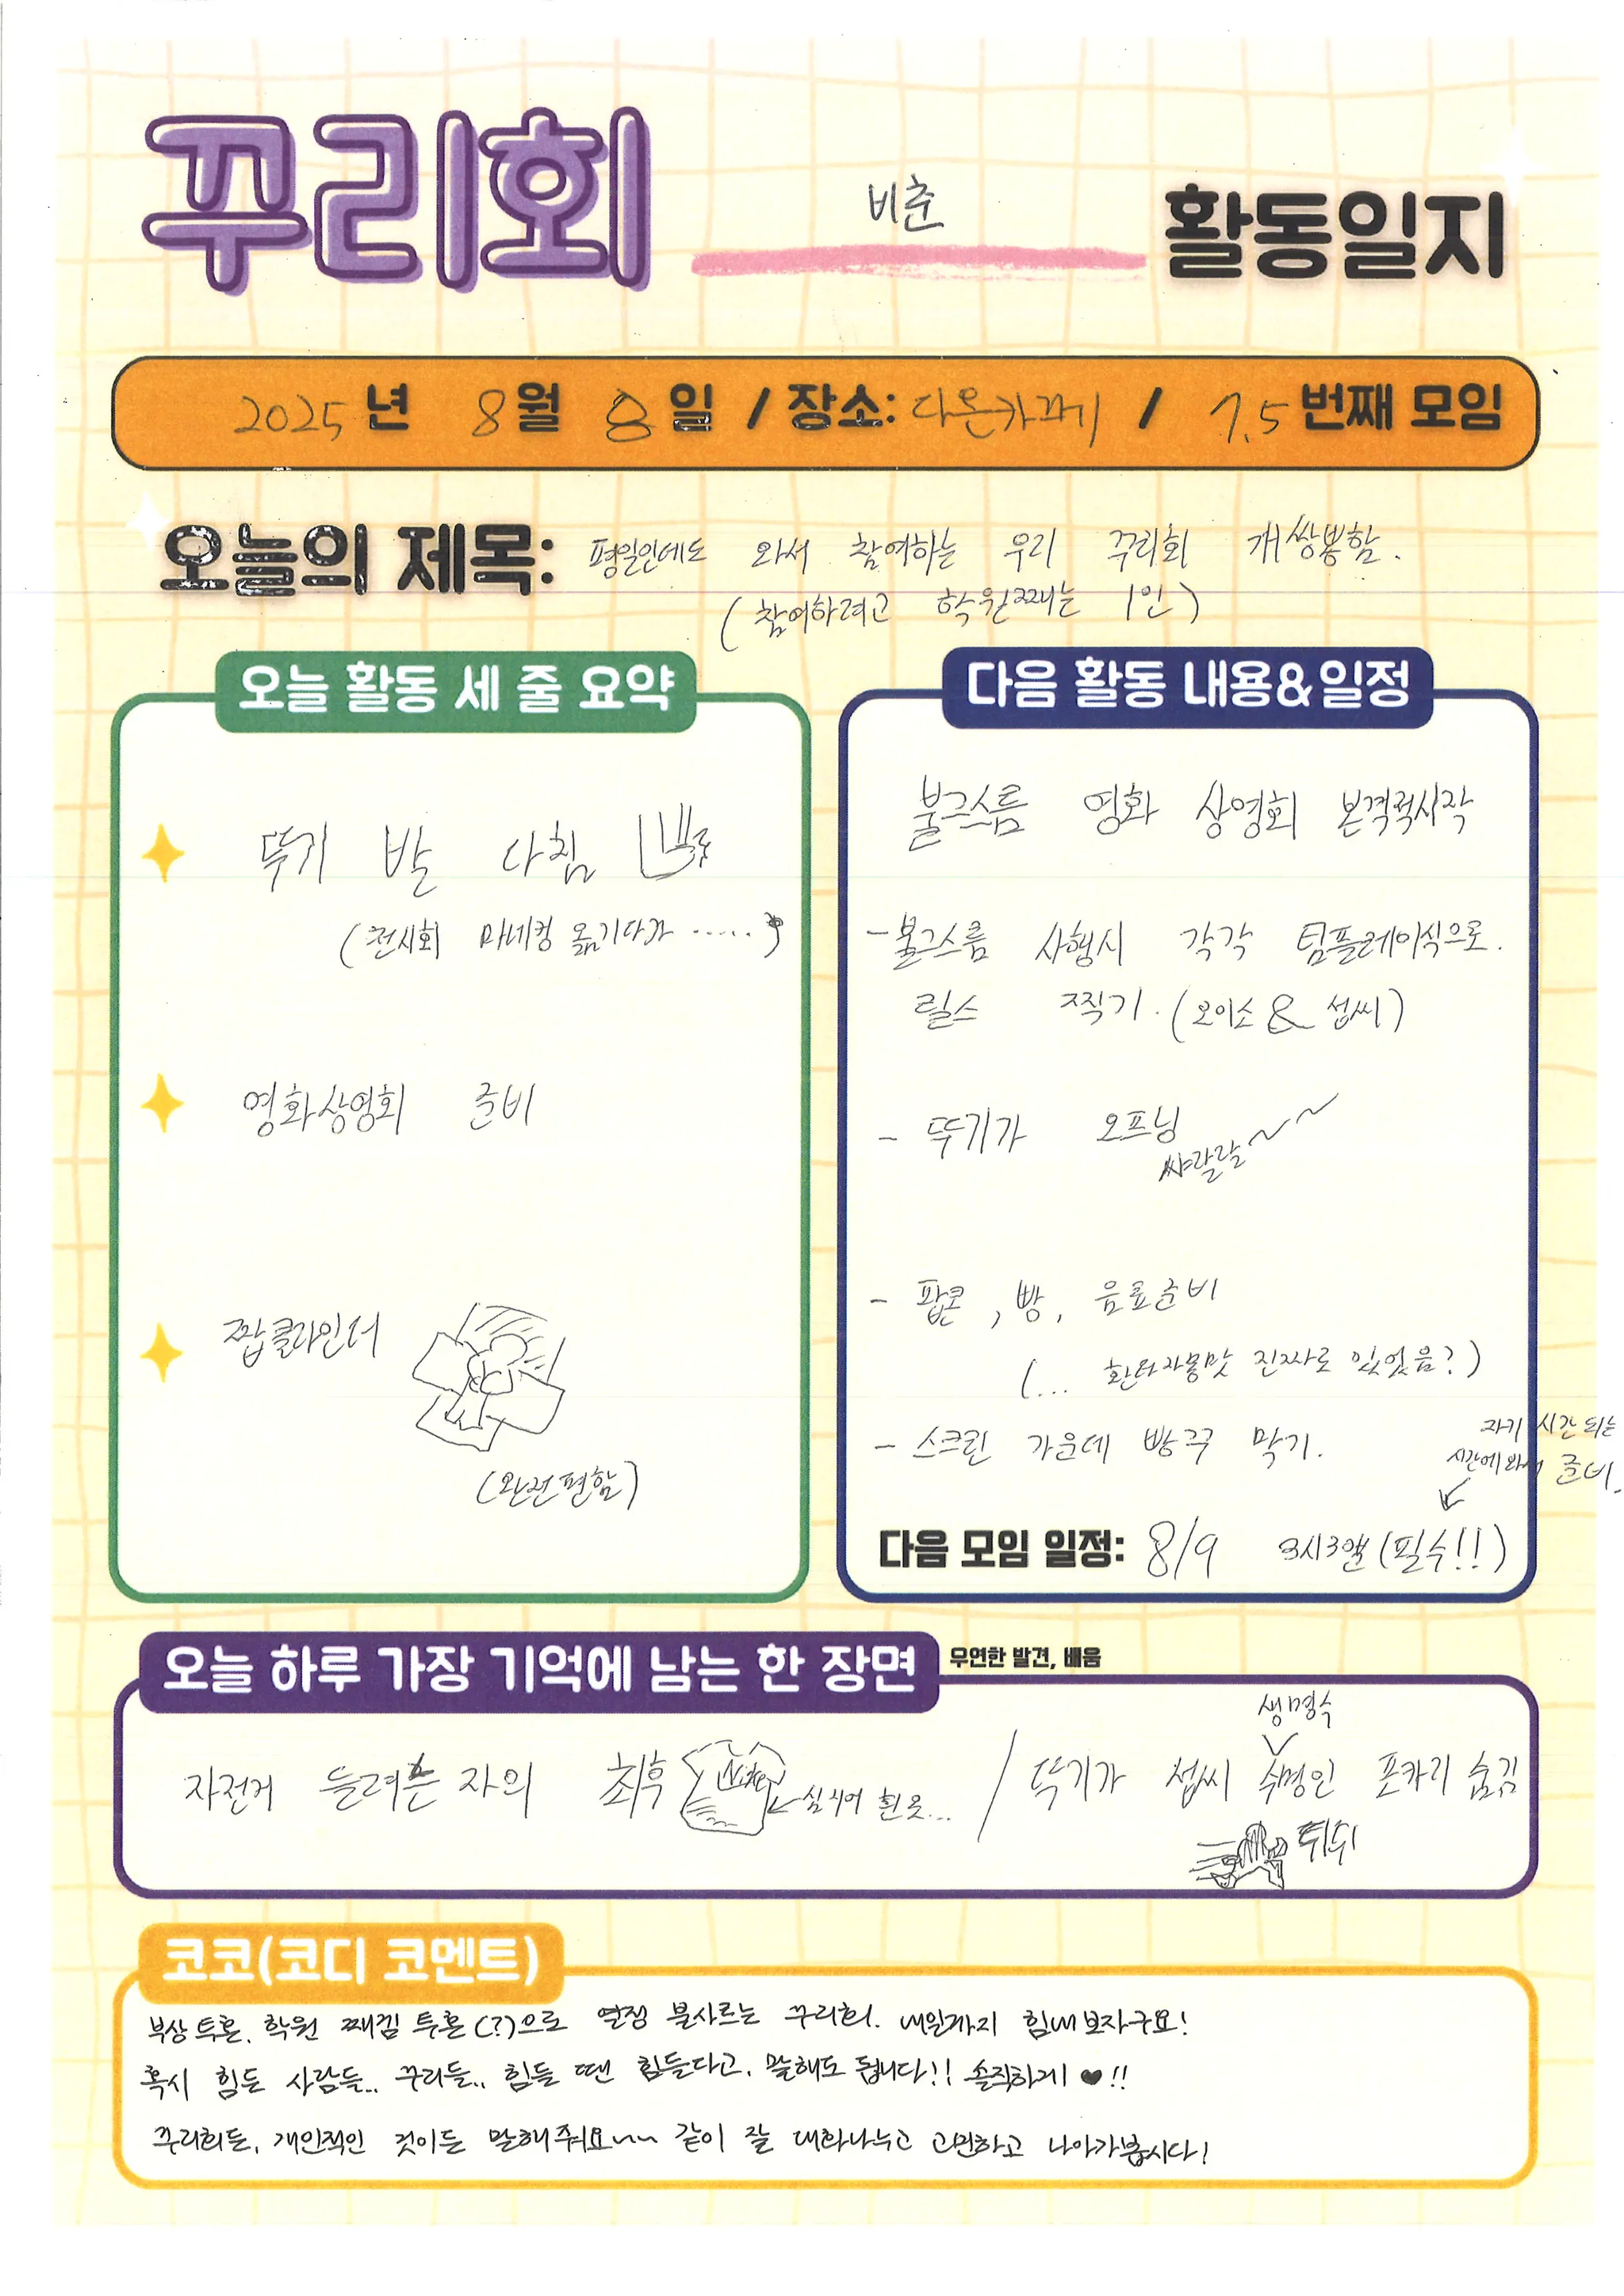 꾸리회 비춘 활동일지
2025년 8월 8일 / 장소: 다온카페 / 7.5번째 모임
오늘의 제목: 평일인데도 와서 참여하는 우리 꾸리회 개쌍봉함.
(참여하려고 학원째는 1인)
오늘 활동 세 줄 요약
뚜기 발 다침
(전시회 마네킹 옮기다가 ......)
영화상영회 준비
짭클라인더
(완전편함)
다음 활동 내용&일정
불그스름 영화 상영회 본격적시작
- 불그스름 사행시 각각 텀플레이식으로.
릴스 찍기. (오이소 & 섭씨)
- 뚜기가 오프닝
쌰랄랄~~
- 팝콘, 빵, 음료준비
(... 환타자몽맛 진짜로 있었음?)
- 스크린 가운데 빵꾸 막기.
자기 시간 되는
시간에 와서 준비.
다음 모임 일정: 8/9 3시3앨 (필수!!)
오늘 하루 가장 기억에 남는 한 장면 우연한 발견, 배움
생명수
자전거 들려흔 자의 최후 실시어 흰옷... / 뚝기가 섭씨 수명인 포카리 숨김
튀쉬
코코(코디 코멘트)
부상 투혼, 학원 째김 투혼(?)으로 열정 불사르는 꾸리회. 내일까지 힘내보자구요!
혹시 힘든 사람들.. 꾸리들.. 힘들 땐 힘들다고, 말해도 됩니다!! 솔직하게 ♥!!
꾸리회든, 개인적인 것이든 말해줘요~~ 같이 잘 대화나누고 고민하고 나아가봅시다!